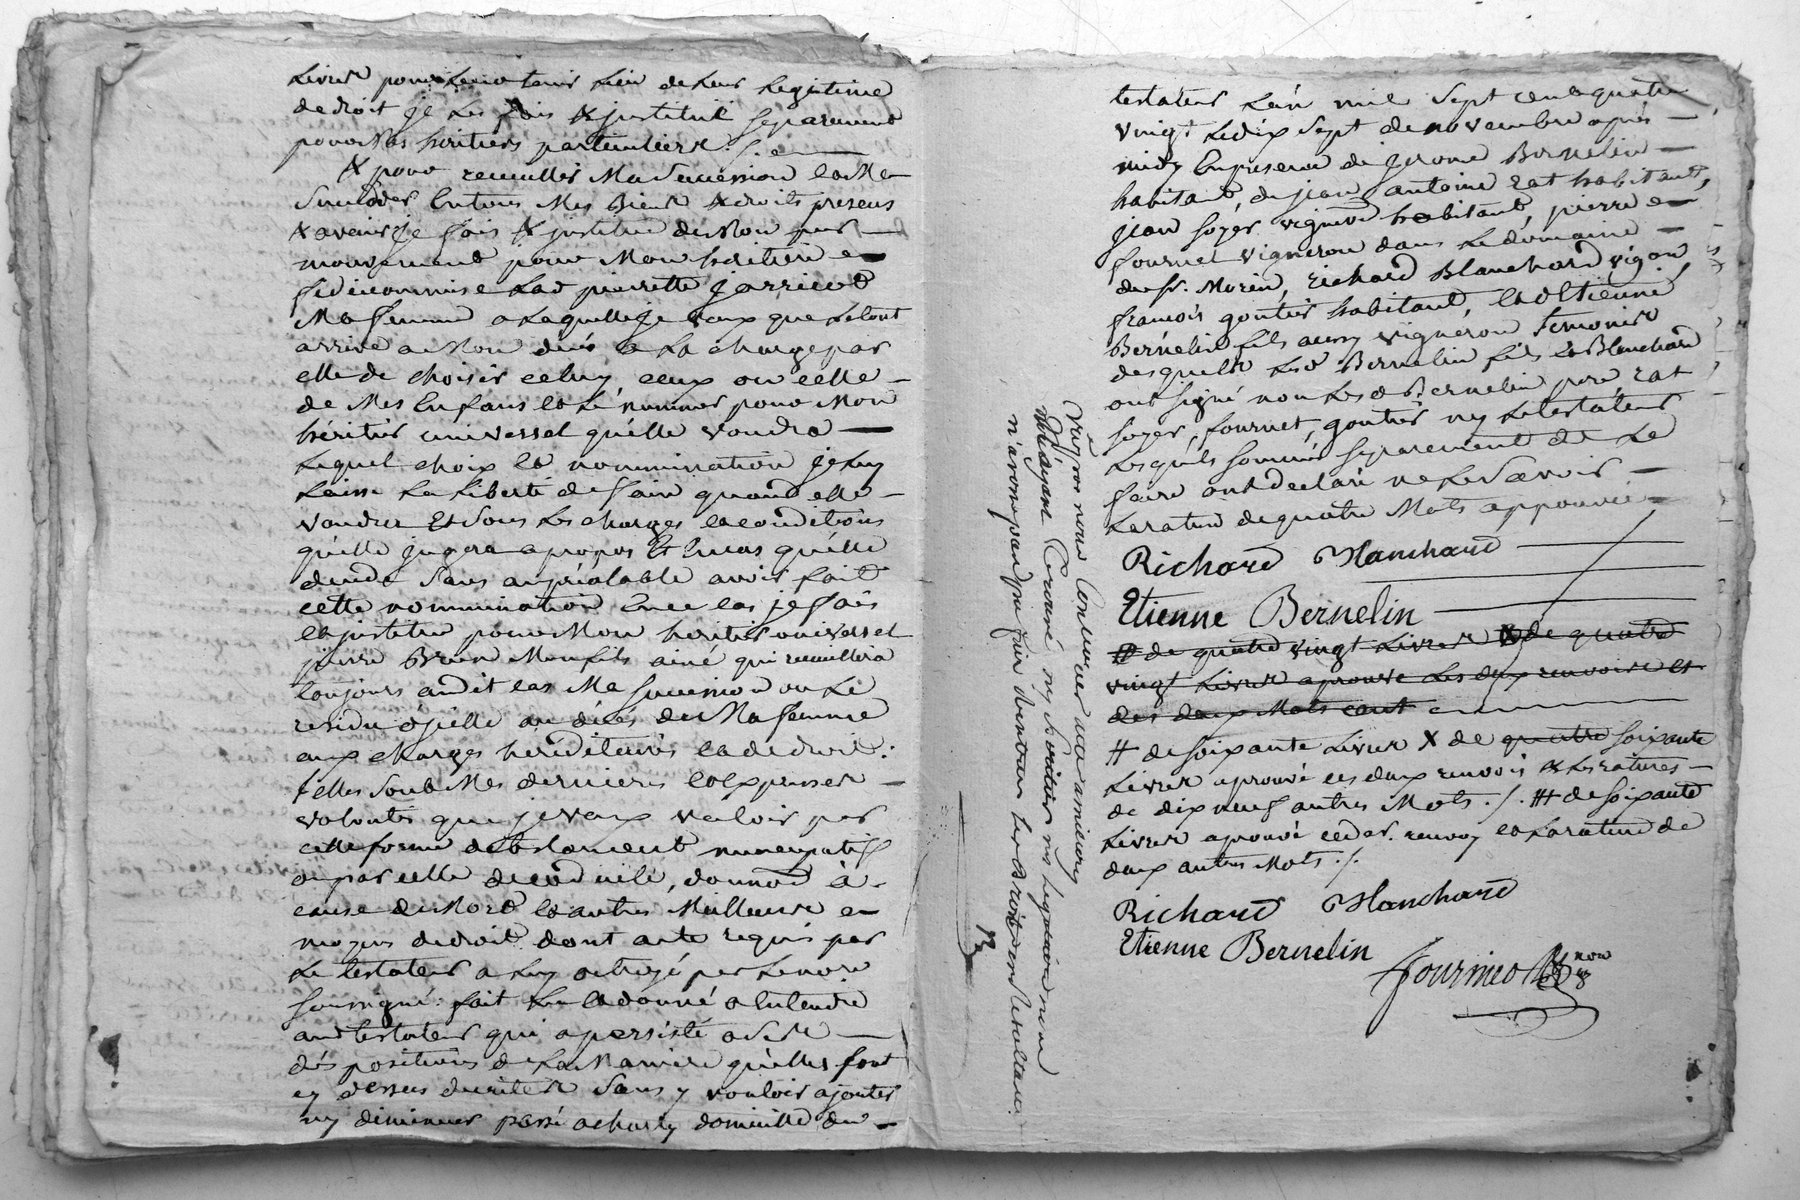 Livres pour leur tenir lieu de leur legitime
de droit je les fais & jnstitue separement
pour Mes heritiers particuliers ./. e
& pour recueillir Ma Succession et Me
Succeder En tous Mes Biens & droits presens
& avenir je fais & jnstitue de Mon pur
mouvement pour Mon héritiere
fideicommise lad pierrette jarricot
Ma femme a laquelle je Veux que le tout
arrive a Mon decès a la charge par
elle de choisir celuy, ceux ou celle
de Mes Enfans et le nommer pour Mon
héritier universel qu'elle voudra
Lequel choix et nommination je luy
Laisse La liberté de faire quand elle
voudra Et Sous les charges et conditions
qu'elle jugera apropos Et En cas qu'elle
decede Sans au préalable avoir fait
cette nommination En ce cas je fais
et jnstitue pour Mon heritier universel
pierre Brun Mon fils ainé qui recueillera
toujours audit cas Ma Succession ou Le
residu d'icelle au décés de Ma femme
aux charges hereditaires et de droit :
telles Sont Mes dernieres et Expresses
volontés que je veux valoir par
cette forme de testament nuncupatif
ou par celle de codicile, donnation à
cause de Mort et autres Meilleurs
moyens de droit dont acte requis par
Le testateur a luy octroyé par Le no.re
Soussigné : fait Leu et donné a Entendre
aud testateur qui a persisté a Ses
dispositions de La Maniere qu'elles font
cy dessus Ecrites Sans y vouloir ajouter
ny diminuer passé a charly domicille du
testateur L'an mil Sept cent quatre
vingt Le dix Sept de novembre aprés
midy En presence de jerome Bernelin
habitant, de jean antoine rat habitant,
jean soyer vigneron habitant, pierre
fournet vigneron dans Le domaine
du Sr. Morin, richard Blanchard vigon
francois gontier habitant, et Etienne
Bernelin fils aussy vigneron temoins
desquels Lesd Bernelin fils et Blanchard
ont signé non Lesd Bernelin pere, rat
soyer, fournet, gontier ny Le testateur
Lesquels sommés separement de Le
faire ont declaré ne Le Savoir
La rature de quatre Mots approuvée
Richard Blanchard
Etienne Bernelin
# de quatre vingt Livres & de quatre
vingt Livres aprouvé Les deux renvois et
des deux Mots
# de soixante Livres X de quatre soixante
Livres aprouvé ces deux renvois & Les ratures
de dix neuf autres Mots ./. ## de soixante
Livres aprouvé ce der. renvoy et La rature de
deux autres Mots ./.
Richard Blanchard
Etienne Bernelin